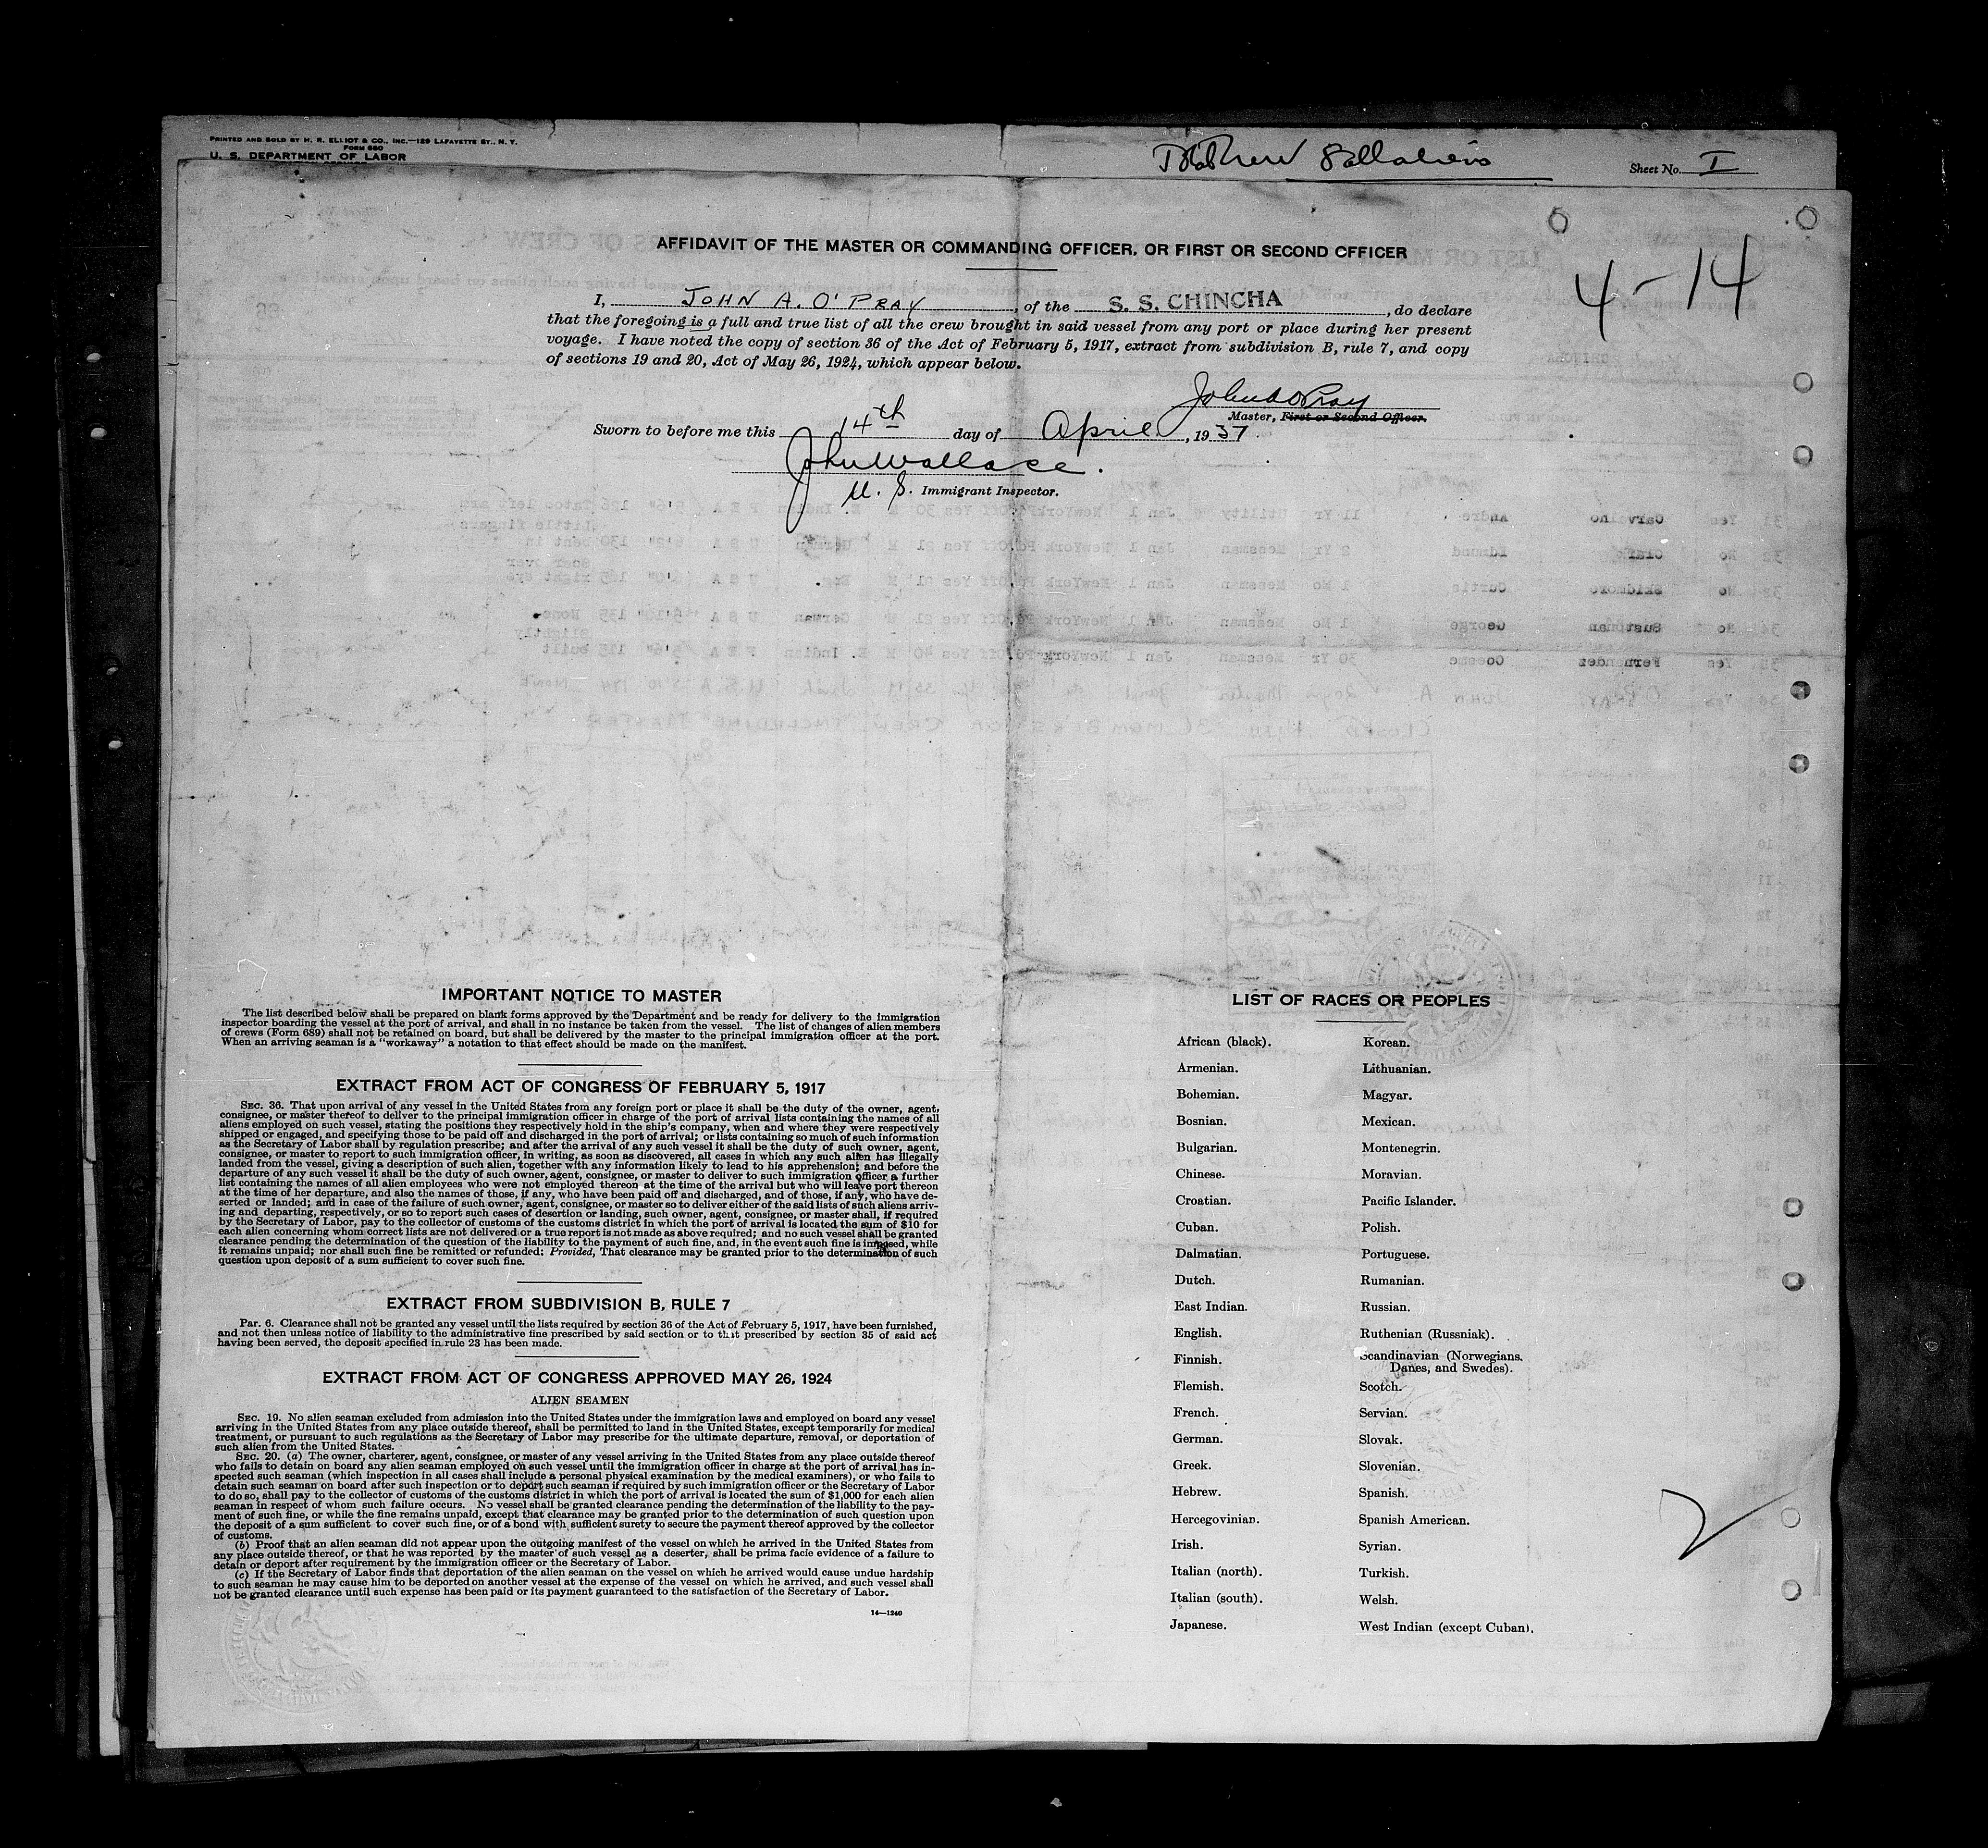 PRINTED AND SOLD BY H. R. ELLIOT & CO., INC.—129 LAFAYETTE ST., N. Y.
FORM 680
U. S. DEPARTMENT OF LABOR
Sheet No. I
AFFIDAVIT OF THE MASTER OR COMMANDING OFFICER, OR FIRST OR SECOND OFFICER
4-14
I, JOHN A. O'PRAY, of the S. S. CHINCHA, do declare
that the foregoing is a full and true list of all the crew brought in said vessel from any port or place during her present
voyage. I have noted the copy of section 36 of the Act of February 5, 1917, extract from subdivision B, rule 7, and copy
of sections 19 and 20, Act of May 26, 1924, which appear below.
John A O'Pray
Master, First or Second Officer.
Sworn to before me this 14th day of April, 1937.
John Wallace.
U. S. Immigrant Inspector.
IMPORTANT NOTICE TO MASTER
The list described below shall be prepared on blank forms approved by the Department and be ready for delivery to the immigration
inspector boarding the vessel at the port of arrival, and shall in no instance be taken from the vessel. The list of changes of alien members
of crews (Form 689) shall not be retained on board, but shall be delivered by the master to the principal immigration officer at the port.
When an arriving seaman is a "workaway" a notation to that effect should be made on the manifest.
EXTRACT FROM ACT OF CONGRESS OF FEBRUARY 5, 1917
SEC. 36. That upon arrival of any vessel in the United States from any foreign port or place it shall be the duty of the owner, agent,
consignee, or master thereof to deliver to the principal immigration officer in charge of the port of arrival lists containing the names of all
aliens employed on such vessel, stating the positions they respectively hold in the ship's company, when and where they were respectively
shipped or engaged, and specifying those to be paid off and discharged in the port of arrival; or lists containing so much of such information
as the Secretary of Labor shall by regulation prescribe; and after the arrival of any such vessel it shall be the duty of such owner, agent,
consignee, or master to report to such immigration officer, in writing, as soon as discovered, all cases in which any such alien has illegally
landed from the vessel, giving a description of such alien, together with any information likely to lead to his apprehension; and before the
departure of any such vessel it shall be the duty of such owner, agent, consignee, or master to deliver to such immigration officer a further
list containing the names of all alien employees who were not employed thereon at the time of the arrival but who will leave port thereon
at the time of her departure, and also the names of those, if any, who have been paid off and discharged, and of those, if any, who have de-
serted or landed; and in case of the failure of such owner, agent, consignee, or master so to deliver either of the said lists of such aliens arriv-
ing and departing, respectively, or so to report such cases of desertion or landing, such owner, agent, consignee, or master shall, if required
by the Secretary of Labor, pay to the collector of customs of the customs district in which the port of arrival is located the sum of $10 for
each alien concerning whom correct lists are not delivered or a true report is not made as above required; and no such vessel shall be granted
clearance pending the determination of the question of the liability to the payment of such fine, and, in the event such fine is imposed, while
it remains unpaid; nor shall such fine be remitted or refunded: Provided, That clearance may be granted prior to the determination of such
question upon deposit of a sum sufficient to cover such fine.
EXTRACT FROM SUBDIVISION B, RULE 7
Par. 6. Clearance shall not be granted any vessel until the lists required by section 36 of the Act of February 5, 1917, have been furnished,
and not then unless notice of liability to the administrative fine prescribed by said section or to that prescribed by section 35 of said act
having been served, the deposit specified in rule 23 has been made.
EXTRACT FROM ACT OF CONGRESS APPROVED MAY 26, 1924
ALIEN SEAMEN
SEC. 19. No alien seaman excluded from admission into the United States under the immigration laws and employed on board any vessel
arriving in the United States from any place outside thereof, shall be permitted to land in the United States, except temporarily for medical
treatment, or pursuant to such regulations as the Secretary of Labor may prescribe for the ultimate departure, removal, or deportation of
such alien from the United States.
SEC. 20. (a) The owner, charterer, agent, consignee, or master of any vessel arriving in the United States from any place outside thereof
who fails to detain on board any alien seaman employed on such vessel until the immigration officer in charge at the port of arrival has in-
spected such seaman (which inspection in all cases shall include a personal physical examination by the medical examiners), or who fails to
detain such seaman on board after such inspection or to deport such seaman if required by such immigration officer or the Secretary of Labor
to do so, shall pay to the collector of customs of the customs district in which the port of arrival is located the sum of $1,000 for each alien
seaman in respect of whom such failure occurs. No vessel shall be granted clearance pending the determination of the liability to the pay-
ment of such fine, or while the fine remains unpaid, except that clearance may be granted prior to the determination of such question upon
the deposit of a sum sufficient to cover such fine, or of a bond with sufficient surety to secure the payment thereof approved by the collector
of customs.
(b) Proof that an alien seaman did not appear upon the outgoing manifest of the vessel on which he arrived in the United States from
any place outside thereof, or that he was reported by the master of such vessel as a deserter, shall be prima facie evidence of a failure to
detain or deport after requirement by the immigration officer or the Secretary of Labor.
(c) If the Secretary of Labor finds that deportation of the alien seaman on the vessel on which he arrived would cause undue hardship
to such seaman he may cause him to be deported on another vessel at the expense of the vessel on which he arrived, and such vessel shall
not be granted clearance until such expense has been paid or its payment guaranteed to the satisfaction of the Secretary of Labor.
14—1240
LIST OF RACES OR PEOPLES
African (black).
Armenian.
Bohemian.
Bosnian.
Bulgarian.
Chinese.
Croatian.
Cuban.
Dalmatian.
Dutch.
East Indian.
English.
Finnish.
Flemish.
French.
German.
Greek.
Hebrew.
Hercegovinian.
Irish.
Italian (north).
Italian (south).
Japanese.
Korean.
Lithuanian.
Magyar.
Mexican.
Montenegrin.
Moravian.
Pacific Islander.
Polish.
Portuguese.
Rumanian.
Russian.
Ruthenian (Russniak).
Scandinavian (Norwegians,
Danes, and Swedes).
Scotch.
Servian.
Slovak.
Slovenian.
Spanish.
Spanish American.
Syrian.
Turkish.
Welsh.
West Indian (except Cuban).
2